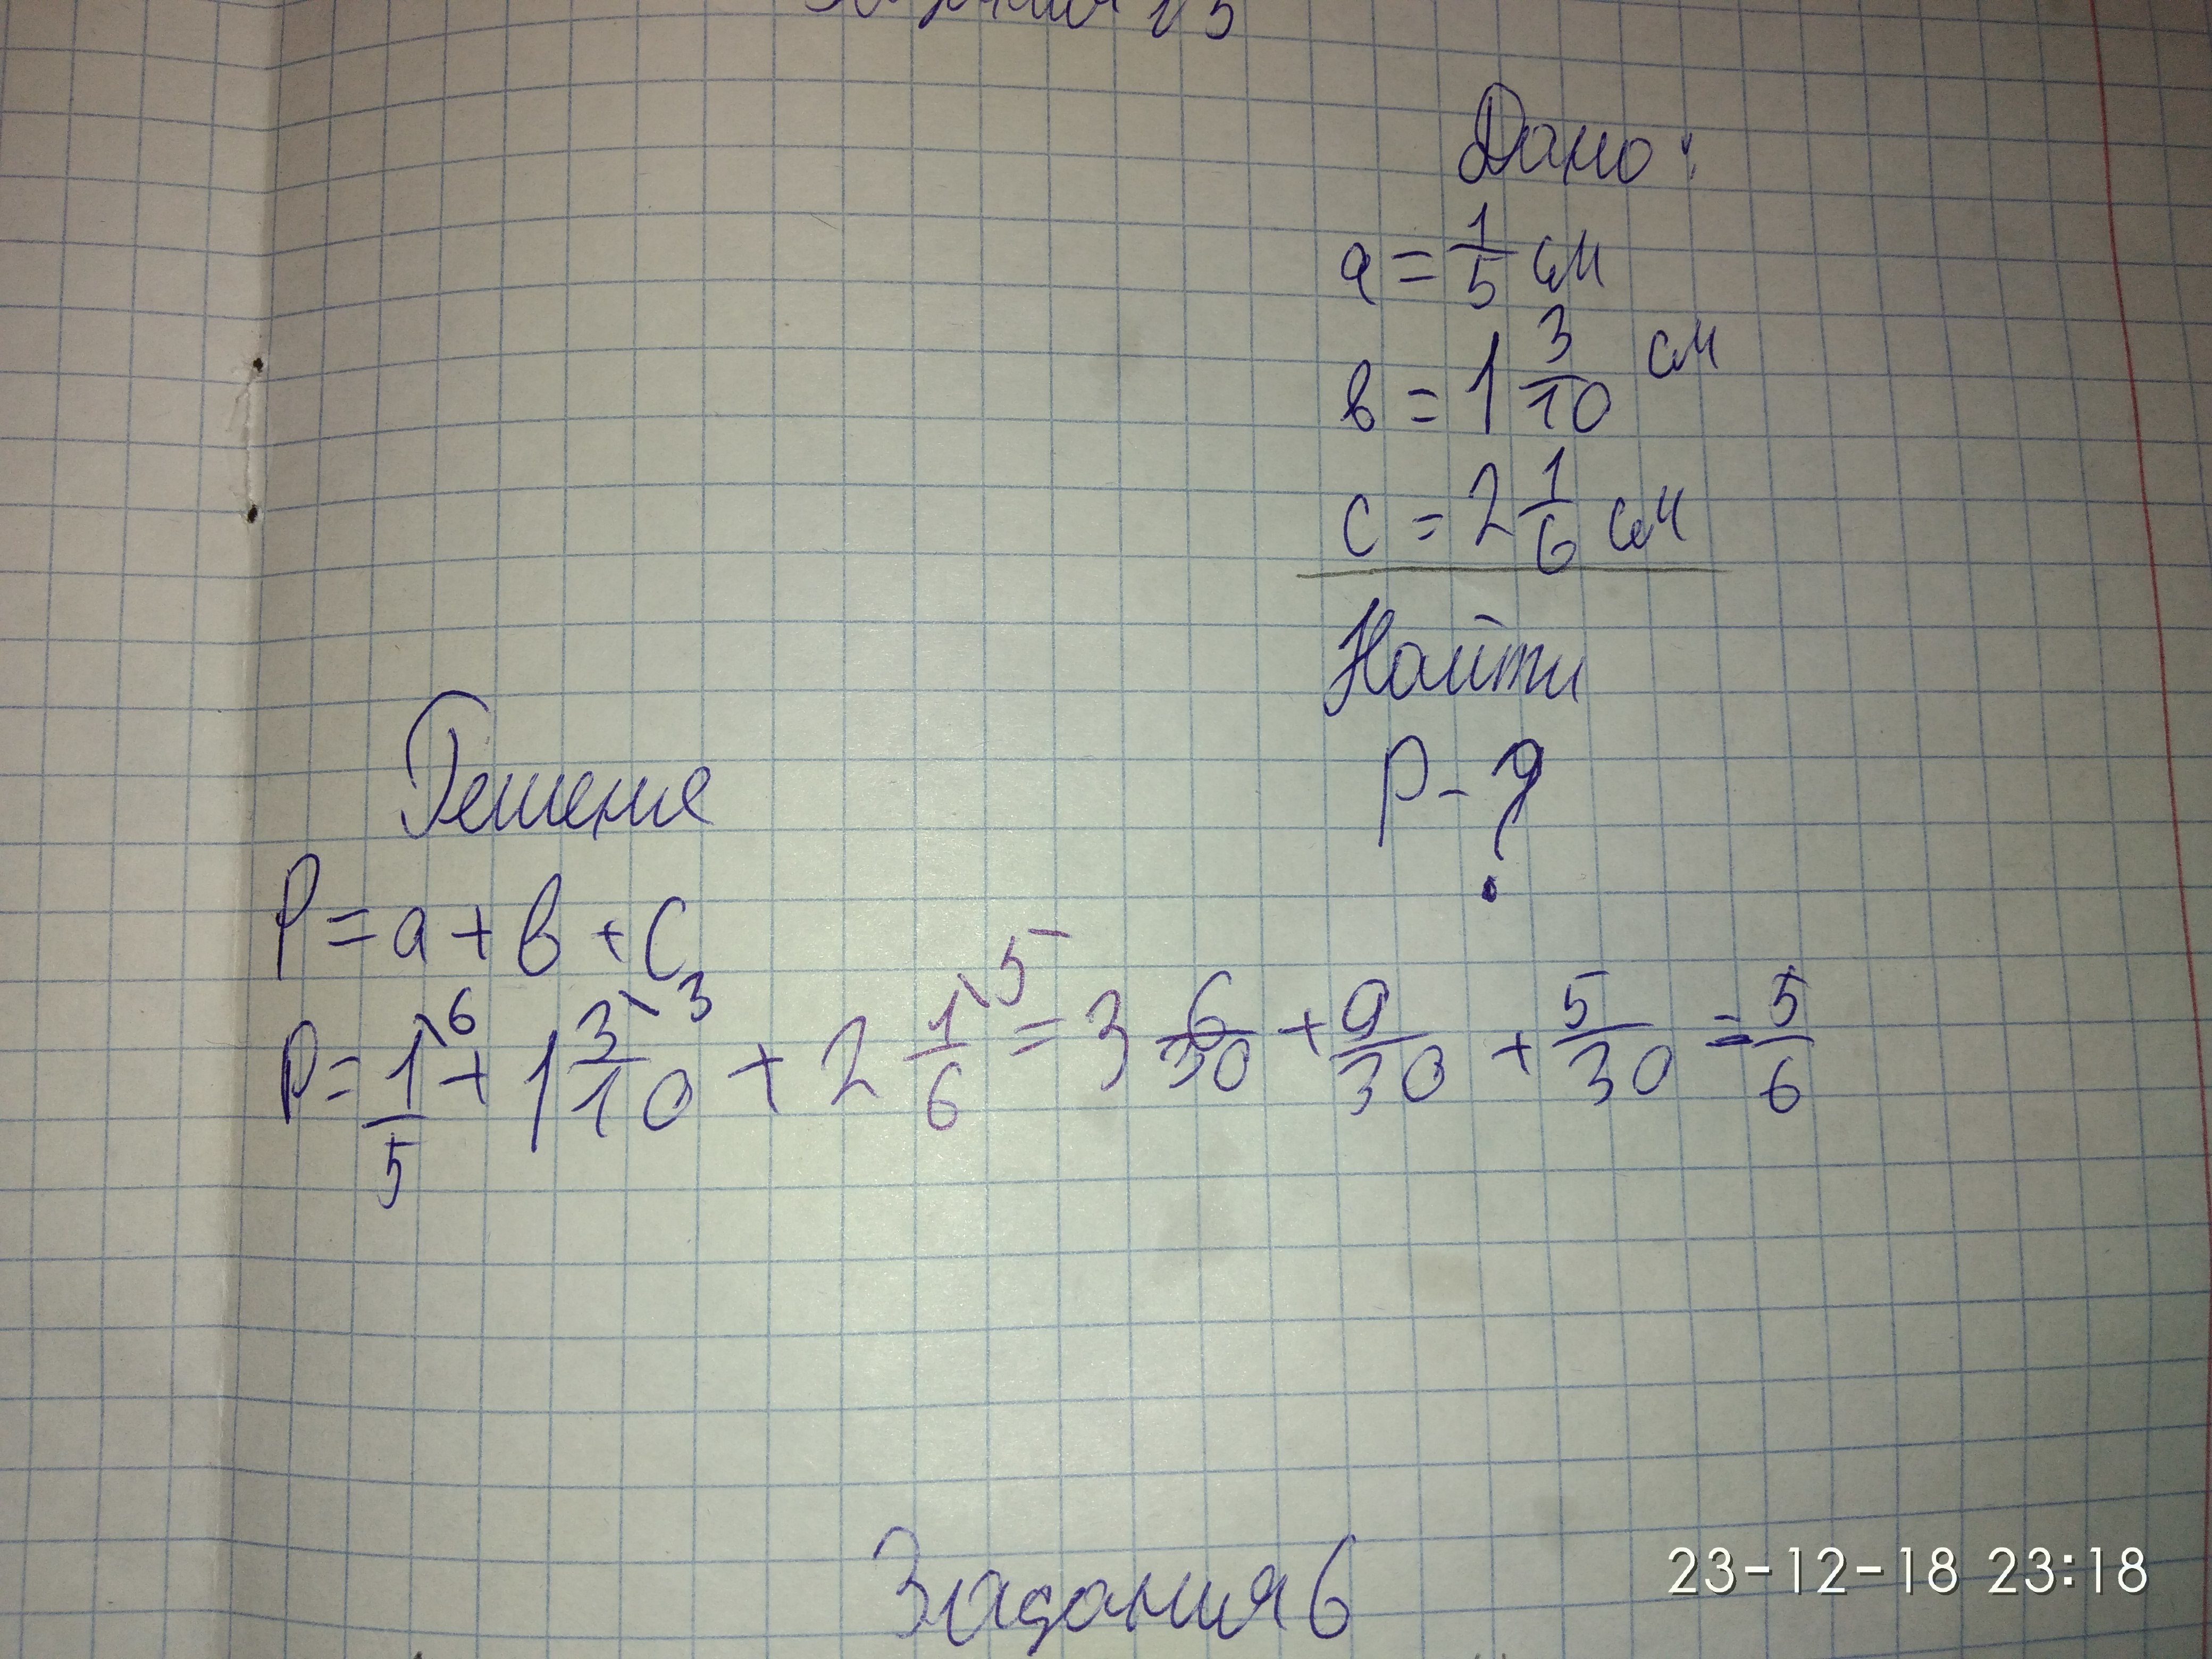 Дано:
a = 1/5 см
в = 1 3/10 см
c = 2 1/6 см
Найти
P - ?
Решение
P = a + в + c
P = 1\6/5 + 1 3\3/10 + 2 1\5/6 = 3 6/30 + 9/30 + 5/30 = 5/6
Задания 6
23-12-18 23:18